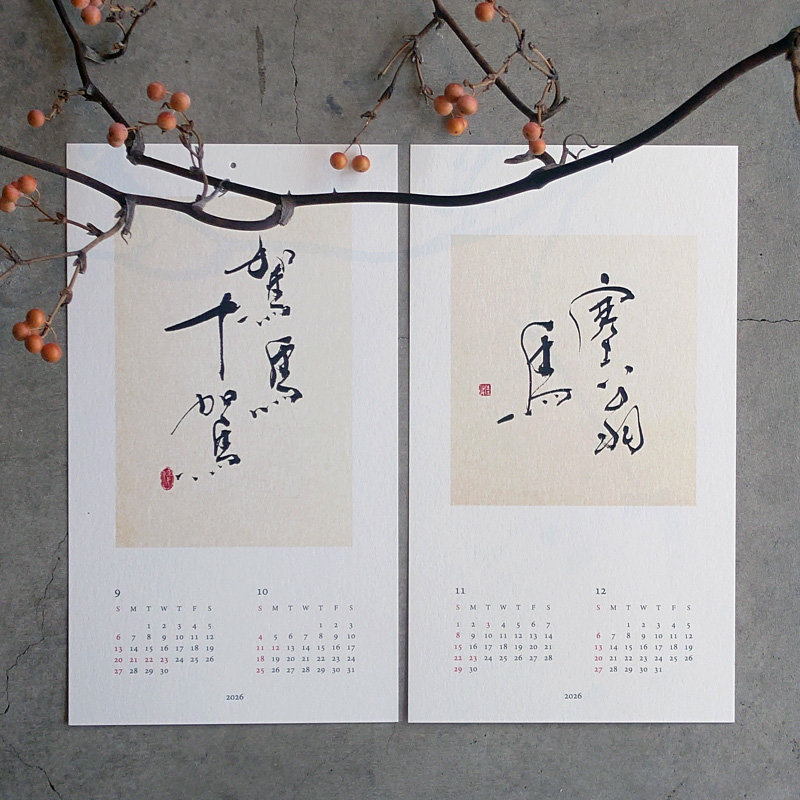 駑馬
十駕
9
S M T W T F S
1 2 3 4 5
6 7 8 9 10 11 12
13 14 15 16 17 18 19
20 21 22 23 24 25 26
27 28 29 30
10
S M T W T F S
1 2 3
4 5 6 7 8 9 10
11 12 13 14 15 16 17
18 19 20 21 22 23 24
25 26 27 28 29 30 31
2026
塞翁
馬
11
S M T W T F S
1 2 3 4 5 6 7
8 9 10 11 12 13 14
15 16 17 18 19 20 21
22 23 24 25 26 27 28
29 30
12
S M T W T F S
1 2 3 4 5
6 7 8 9 10 11 12
13 14 15 16 17 18 19
20 21 22 23 24 25 26
27 28 29 30 31
2026